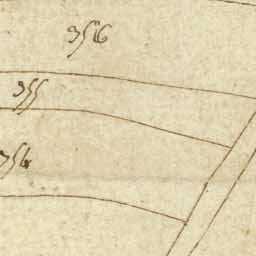 356
355
354